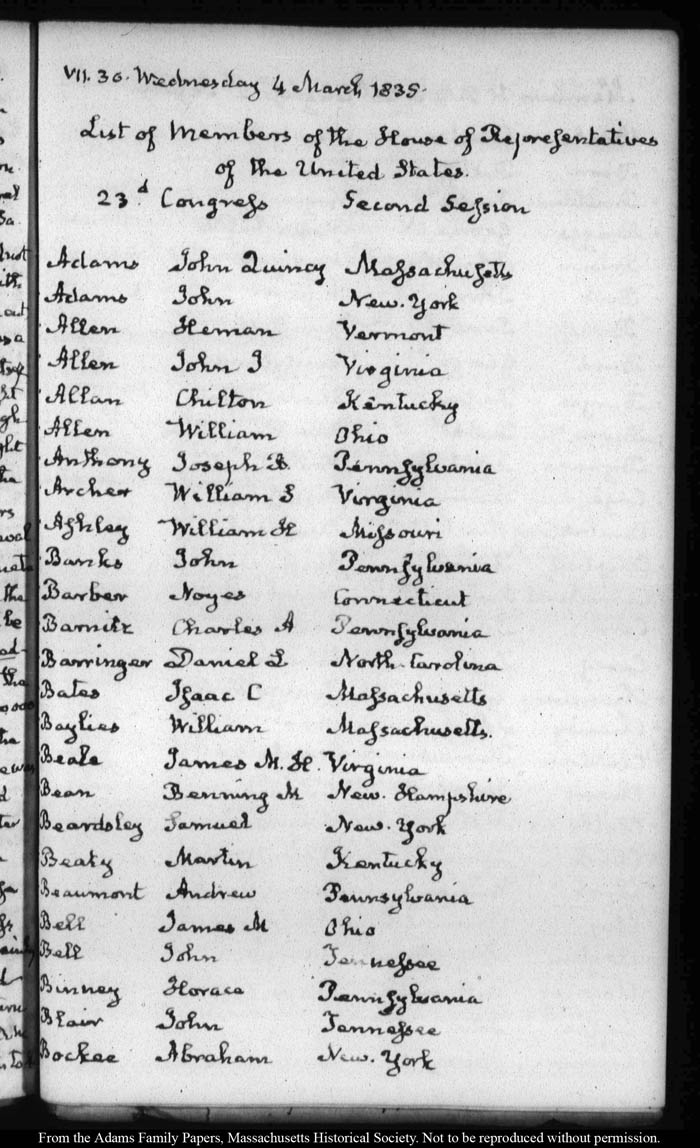 VII. 30. Wednesday 4 March 1835.
List of Members of the House of Representatives
of the United States.
23.d Congress Second Session
Adams John Quincy Massachusetts
Adams John New-York
Allen Heman Vermont
Allen John J Virginia
Allan Chilton Kentucky
Allen William Ohio
Anthony Joseph B. Pennsylvania
Archer William S Virginia
Ashley William H Missouri
Banks John Pennsylvania
Barber Noyes Connecticut
Barnitz Charles A Pennsylvania
Barringer Daniel L North-Carolina
Bates Isaac C Massachusetts
Baylies William Massachusetts.
Beale James M. H Virginia
Bean Benning M New-Hampshire
Beardsley Samuel New-York
Beaty Martin Kentucky
Beaumont Andrew Pennsylvania
Bell James M Ohio
Bell John Tennessee
Binney Horace Pennsylvania
Blair John Tennessee
Bockee Abraham New-York
From the Adams Family Papers, Massachusetts Historical Society. Not to be reproduced without permission.